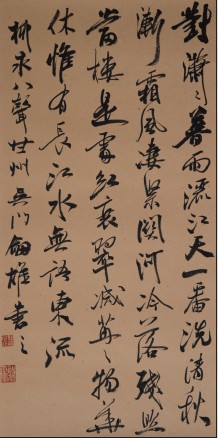 對瀟〻暮雨洒江天一番洗清秋
漸霜風淒緊關河冷落殘照
當樓是處紅衰翠減苒〻物華
休惟有長江水無語東流
柳永八聲甘州吳門劍雄書之